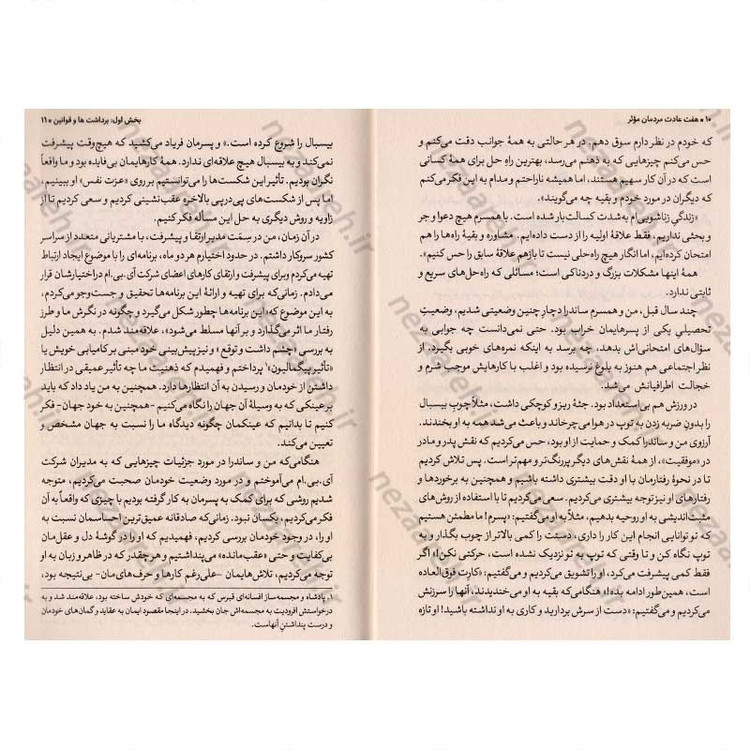 ۱۰ • هفت عادت مردمان مؤثر
که خودم در نظر دارم سوق دهم. در هر حالتی به همهٔ جوانب دقت می‌کنم و
حس می‌کنم چیزهایی که به ذهنم می‌رسد، بهترین راه حل برای همهٔ کسانی
است که در آن کار سهیم هستند، اما همیشه ناراحتم و مدام به این فکر می‌کنم
که دیگران در مورد خودم و بقیه چه می‌گویند.»
«زندگی زناشویی‌ام به‌شدت کسالت‌بار شده است. با همسرم هیچ دعوا و جر
و بحثی نداریم، فقط علاقهٔ اولیه را از دست داده‌ایم. مشاوره و بقیهٔ راه‌ها را هم
امتحان کرده‌ایم، اما انگار هیچ راه‌حلی نیست تا بازهم علاقهٔ سابق را حس کنیم.»
همهٔ اینها مشکلات بزرگ و دردناکی است؛ مسائلی که راه‌حل‌های سریع و
ثابتی ندارد.
چند سال قبل، من و همسرم ساندرا دچار چنین وضعیتی شدیم، وضعیتِ
تحصیلیِ یکی از پسرهایمان خراب بود. حتی نمی‌دانست چه جوابی به
سؤال‌های امتحانی‌اش بدهد، چه برسد به اینکه نمره‌های خوبی بگیرد. از
نظر اجتماعی هم هنوز به بلوغ نرسیده بود و اغلب با کارهایش موجب شرم و
خجالت اطرافیانش می‌شد.
در ورزش هم بی‌استعداد بود. جثهٔ ریز و کوچکی داشت، مثلاً چوب بیسبال
را بدون ضربه زدن به توپ در هوا می‌چرخاند و باعث می‌شد همه به او بخندند.
آرزوی من و ساندرا کمک و حمایت از او بود، حس می‌کردیم که نقش پدر و مادر
در «موفقیت»، از همهٔ نقش‌های دیگر پررنگ‌تر و مهم‌تر است. پس تلاش کردیم
تا در نحوهٔ رفتارمان با او دقت بیشتری داشته باشیم و همچنین به برخوردها و
رفتارهای او نیز توجه بیشتری می‌کردیم. سعی می‌کردیم تا با استفاده از روش‌های
مثبت‌اندیشی به او روحیه بدهیم، مثلاً به او می‌گفتیم: «پسرم! ما مطمئن هستیم
که تو توانایی انجام این کار را داری، دستت را کمی بالاتر از چوب بگذار و به
توپ نگاه کن و تا وقتی که توپ به تو نزدیک نشده است، حرکتی نکن!» اگر
فقط کمی پیشرفت می‌کرد، او را تشویق می‌کردیم و می‌گفتیم: «کارت فوق‌العاده
است، همین‌طور ادامه بده!» هنگامی‌که بقیه به او می‌خندیدند، آنها را سرزنش
می‌کردیم و می‌گفتیم: «دست از سرش بردارید و کاری به او نداشته باشید! او تازه
بخش اول: برداشت ها و قوانین • ۱۱
بیسبال را شروع کرده است.» و پسرمان فریاد می‌کشید که هیچ‌وقت پیشرفت
نمی‌کند و به بیسبال هیچ علاقه‌ای ندارد. همهٔ کارهایمان بی‌فایده بود و ما واقعاً
نگران بودیم. تأثیر این شکست‌ها را می‌توانستیم بر روی «عزت نفس» او ببینیم،
اما پس از شکست‌های پی‌درپی بالاخره عقب‌نشینی کردیم و سعی کردیم تا از
زاویه و روش دیگری به حل این مسأله فکر کنیم.
در آن زمان، من در سِمَت مدیر ارتقا و پیشرفت، با مشتریانی متعدد از سراسر
کشور سروکار داشتم. در حدود اختیارم هر دو ماه، برنامه‌ای را با موضوع ایجاد ارتباط
تهیه می‌کردم و برای پیشرفت و ارتقای کارهای اعضای شرکت آی.بی.ام در اختیارشان قرار
می‌دادم. زمانی‌که برای تهیه و ارائهٔ این برنامه‌ها تحقیق و جست‌وجو می‌کردم،
به این موضوع که «این برنامه‌ها چطور شکل می‌گیرد و چگونه در نگرش ما و طرز
رفتار ما اثر می‌گذارد و بر آنها مسلط می‌شود»، علاقه‌مند شدم. به همین دلیل
به بررسی «چشم داشت و توقع» و نیز پیش‌بینی خود مبنی بر کامیابی خویش یا
«تأثیر پیگمالیون»۱ پرداختم و فهمیدم که ذهنیت ما چه تأثیر عمیقی در انتظار
داشتن از خودمان و رسیدن به آن انتظارها دارد. همچنین به من یاد داد که باید
بر عینکی که به وسیلهٔ آن جهان را نگاه می‌کنیم -همچنین به خود جهان- فکر
کنیم تا بدانیم که عینکمان چگونه دیدگاه ما را نسبت به جهان مشخص و
تعیین می‌کند.
هنگامی‌که من و ساندرا در مورد جزئیات چیزهایی که به مدیران شرکت
آی.بی.ام می‌آموختم و در مورد وضعیت خودمان صحبت می‌کردیم، متوجه
شدیم روشی که برای کمک به پسرمان به کار گرفته بودیم با چیزی که واقعاً به آن
فکر می‌کردیم، یکسان نبود. زمانی‌که صادقانه عمیق‌ترین احساسمان نسبت به
او را، در وجود خودمان بررسی کردیم، فهمیدیم که او را در گوشهٔ دل و عقل‌مان
بی‌کفایت و حتی «عقب‌مانده» می‌پنداشتیم و هرچقدر که در ظاهر و زبان به او
توجه می‌کردیم، تلاش‌هایمان -علی‌رغم کارها و حرف‌های‌مان- بی‌نتیجه بود،
۱. پادشاه و مجسمه‌ساز افسانه‌ای قبرس که به مجسمه‌ای که خودش ساخته بود، علاقه‌مند شد و به
درخواستش آفرودیت به مجسمه‌اش جان بخشید. در اینجا مقصود ایمان به عقاید و گمان‌های خودمان
و درست پنداشتن آنهاست.
nezaaeh.ir